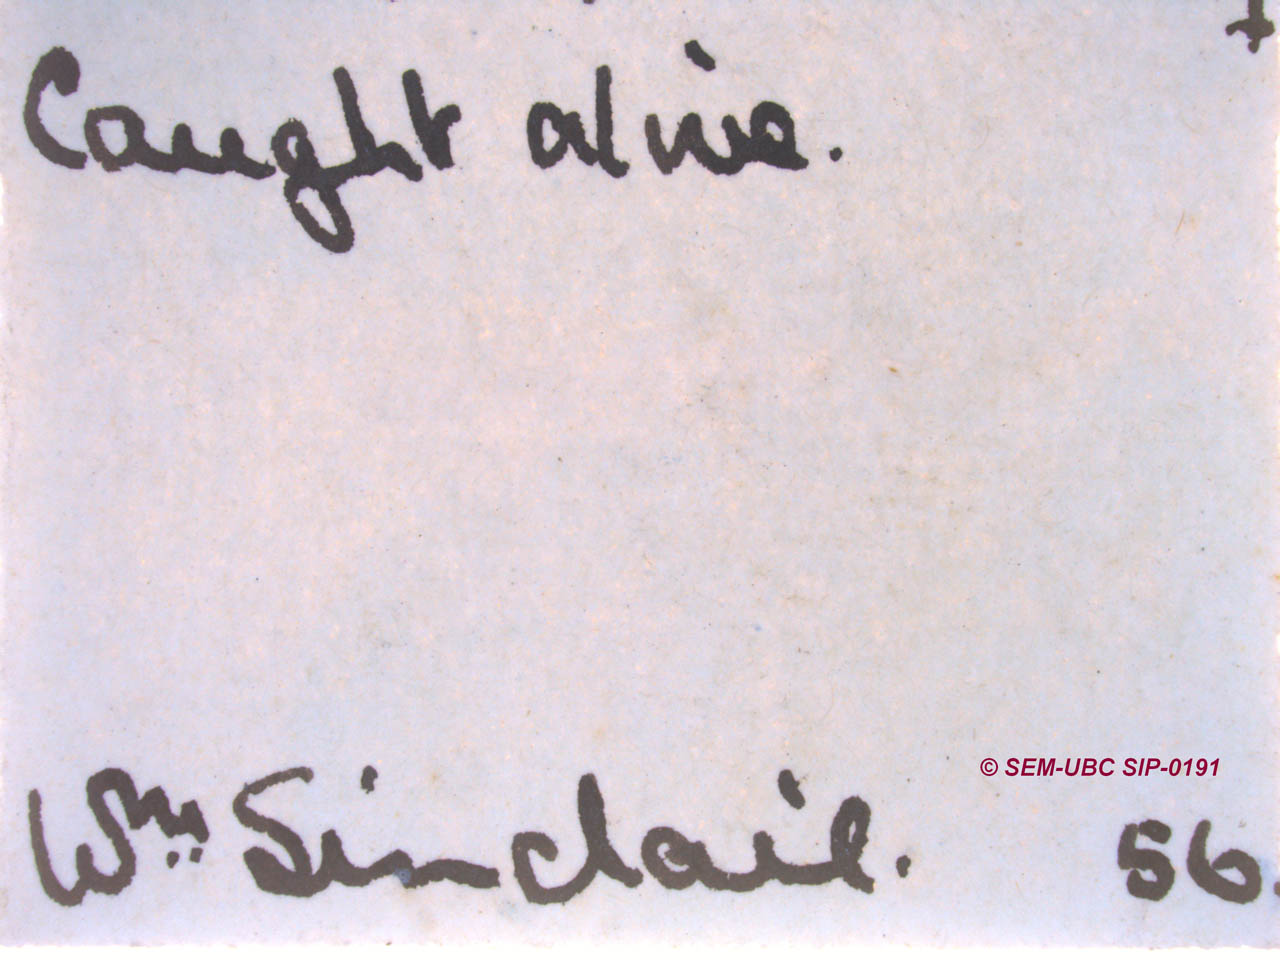 Caught alive.
© SEM-UBC SIP-0191
Wm Sinclair. 56.